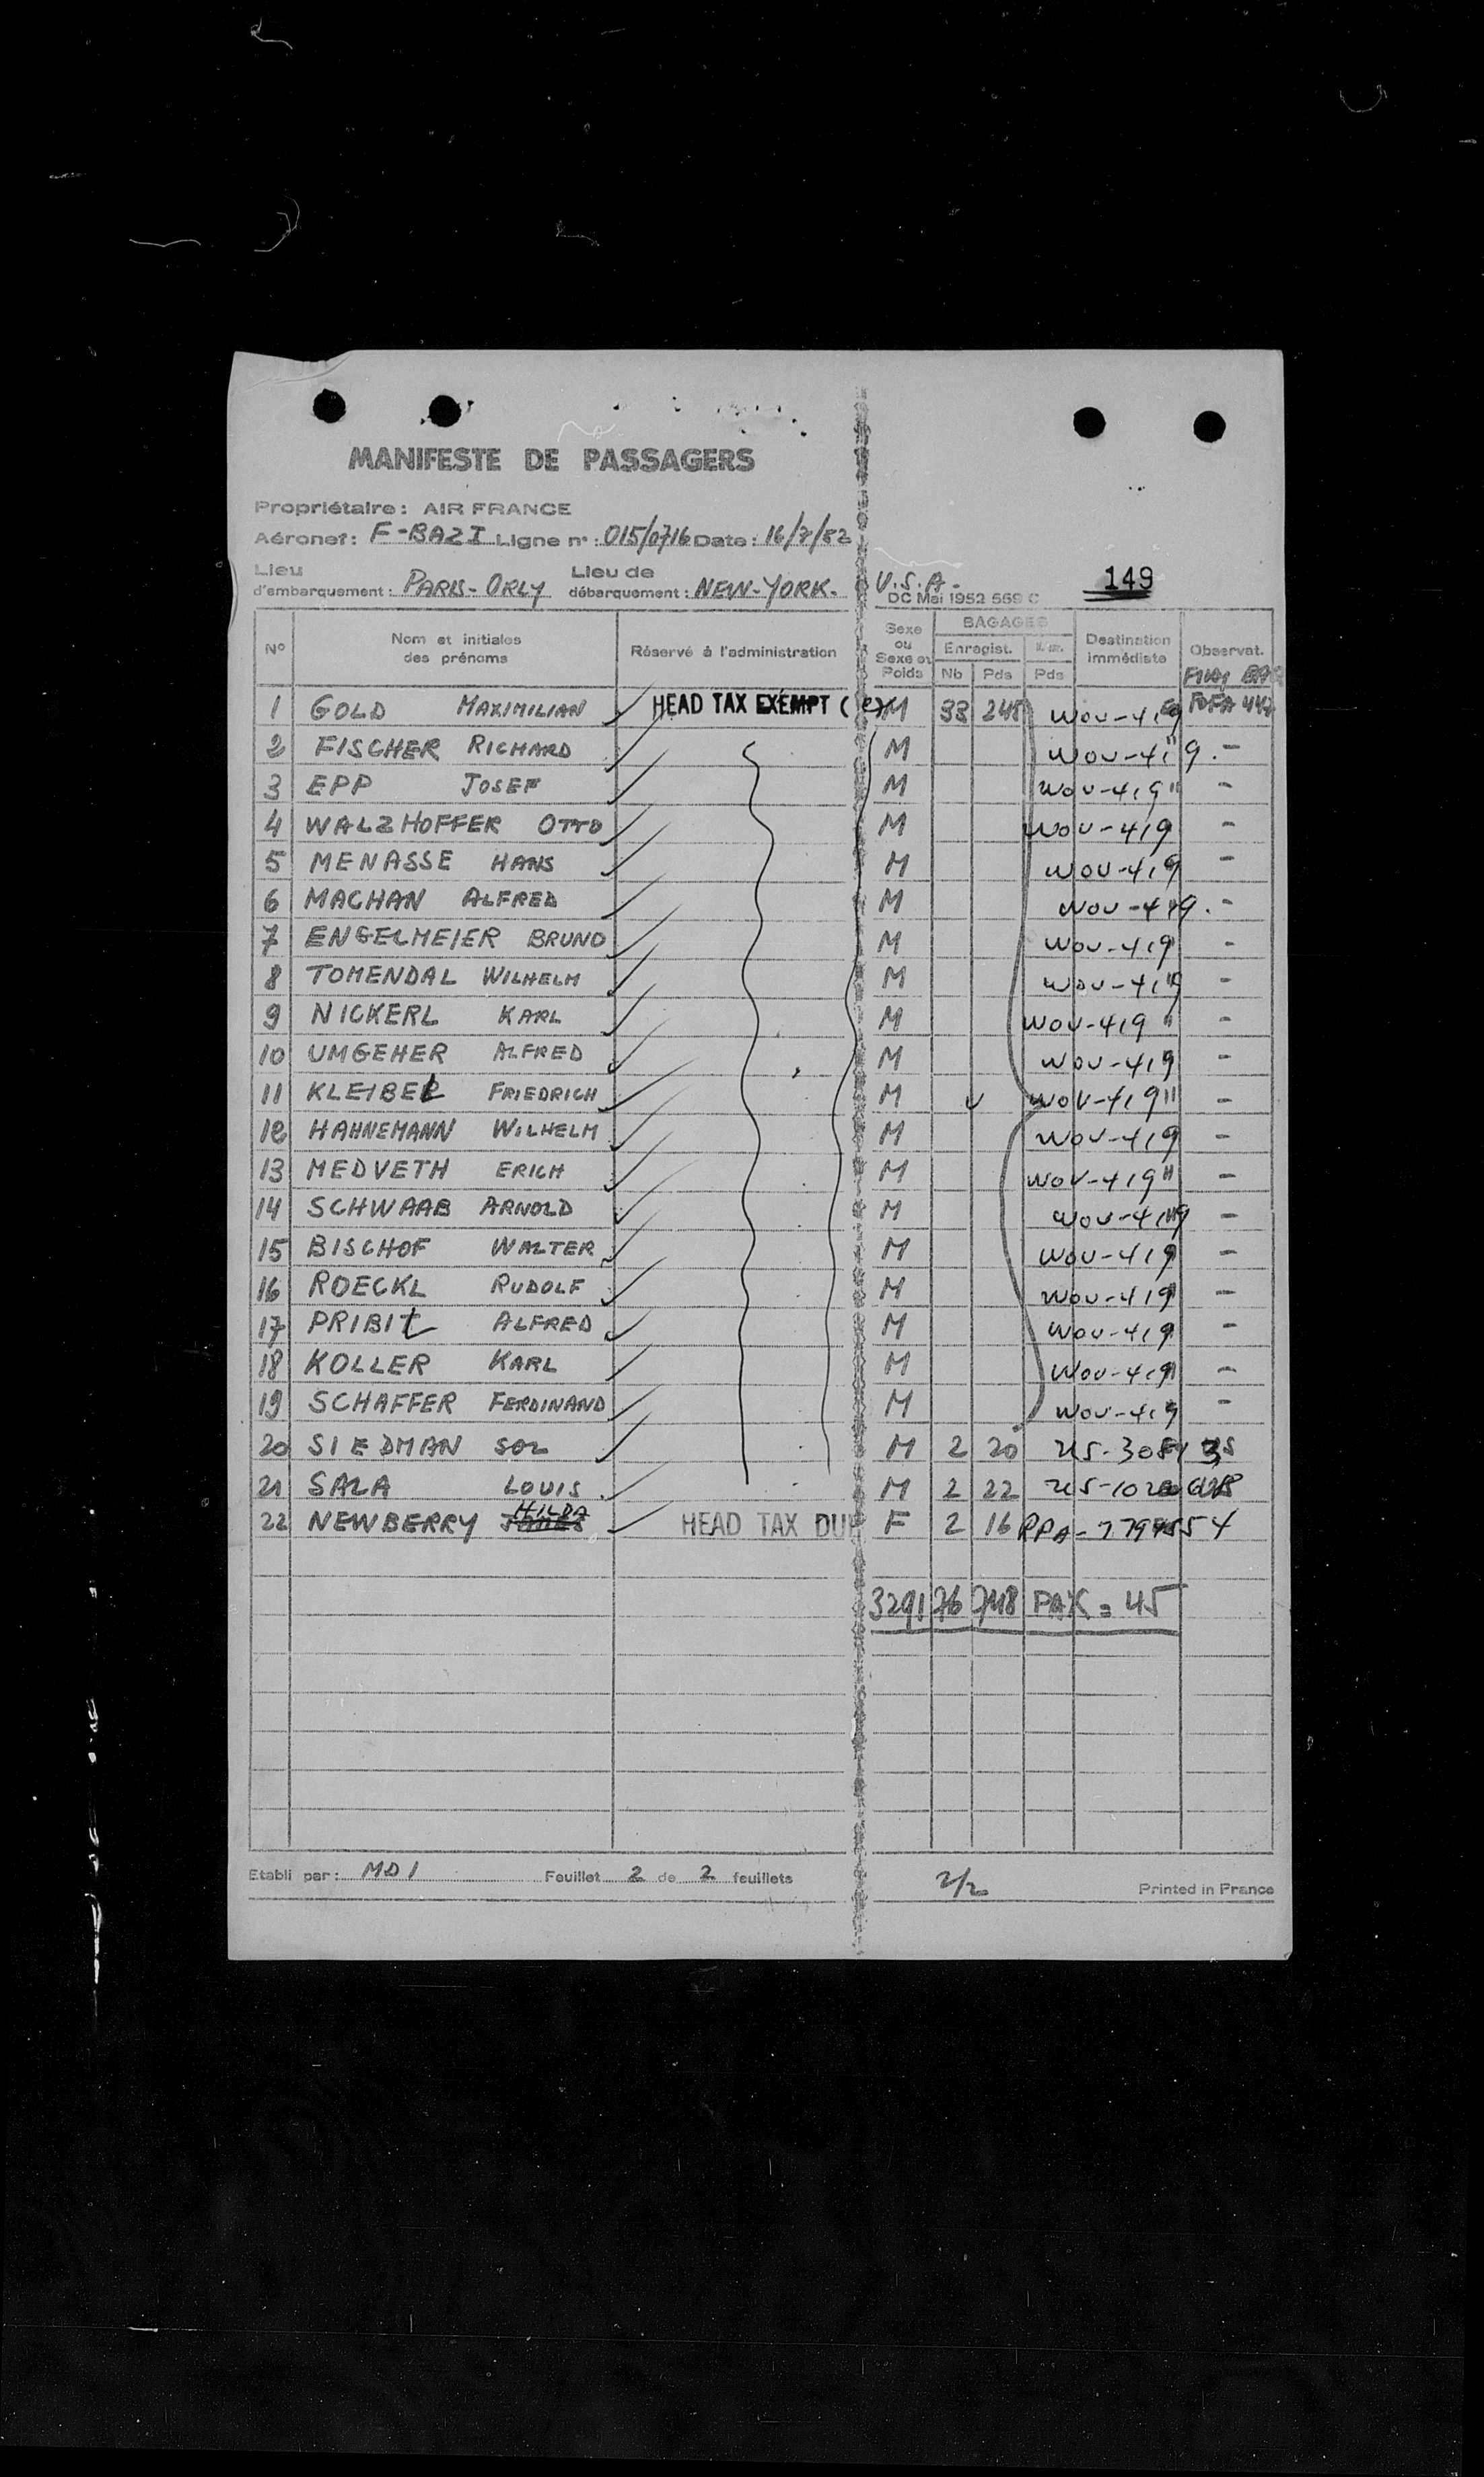 MANIFESTE DE PASSAGERS
Propriétaire: AIR FRANCE
Aéronef: F-BAZI Ligne n°: 015/0716 Date: 16/7/52
Lieu d'embarquement: PARIS-ORLY Lieu de débarquement: NEW-YORK. U.S.A-
149
DC Mai 1952 569 C
N° Nom et initiales des prénoms Réservé à l'administration Sexe ou Sexe et Poids BAGAGES Enregist. Nb Pds Pds Destination immédiate Observat.
1 GOLD MAXIMILIAN HEAD TAX EXEMPT ( M 33 248 WOU-419
2 FISCHER RICHARD M WOU-419 -
3 EPP JOSEF M WOU-419 " -
4 WALZHOFFER OTTO M WOU-419 -
5 MENASSE HANS M WOU-419 -
6 MACHAN ALFRED M WOU-419 -
7 ENGELMEIER BRUNO M WOU-419 -
8 TOMENDAL WILHELM M WOU-419 -
9 NICKERL KARL M WOU-419 " -
10 UMGEHER ALFRED M WOU-419 -
11 KLEIBEL FRIEDRICH M WOU-419 " -
12 HAHNEMANN WILHELM M WOU-419 -
13 MEDVETH ERICH M WOU-419 " -
14 SCHWAAB ARNOLD M WOU-419 -
15 BISCHOF WALTER M WOU-419 -
16 ROECKL RUDOLF M WOU-419 -
17 PRIBIL ALFRED M WOU-419 -
18 KOLLER KARL M WOU-419 -
19 SCHAFFER FERDINAND M WOU-419 -
20 SIEDMAN SOL M 2 20
21 SALA LOUIS M 2 22
22 NEWBERRY HILDA HEAD TAX DUE F 2 16
PAX = 45
Etabli par: MD1 Feuillet 2 de 2 feuillets 2/2 Printed in France